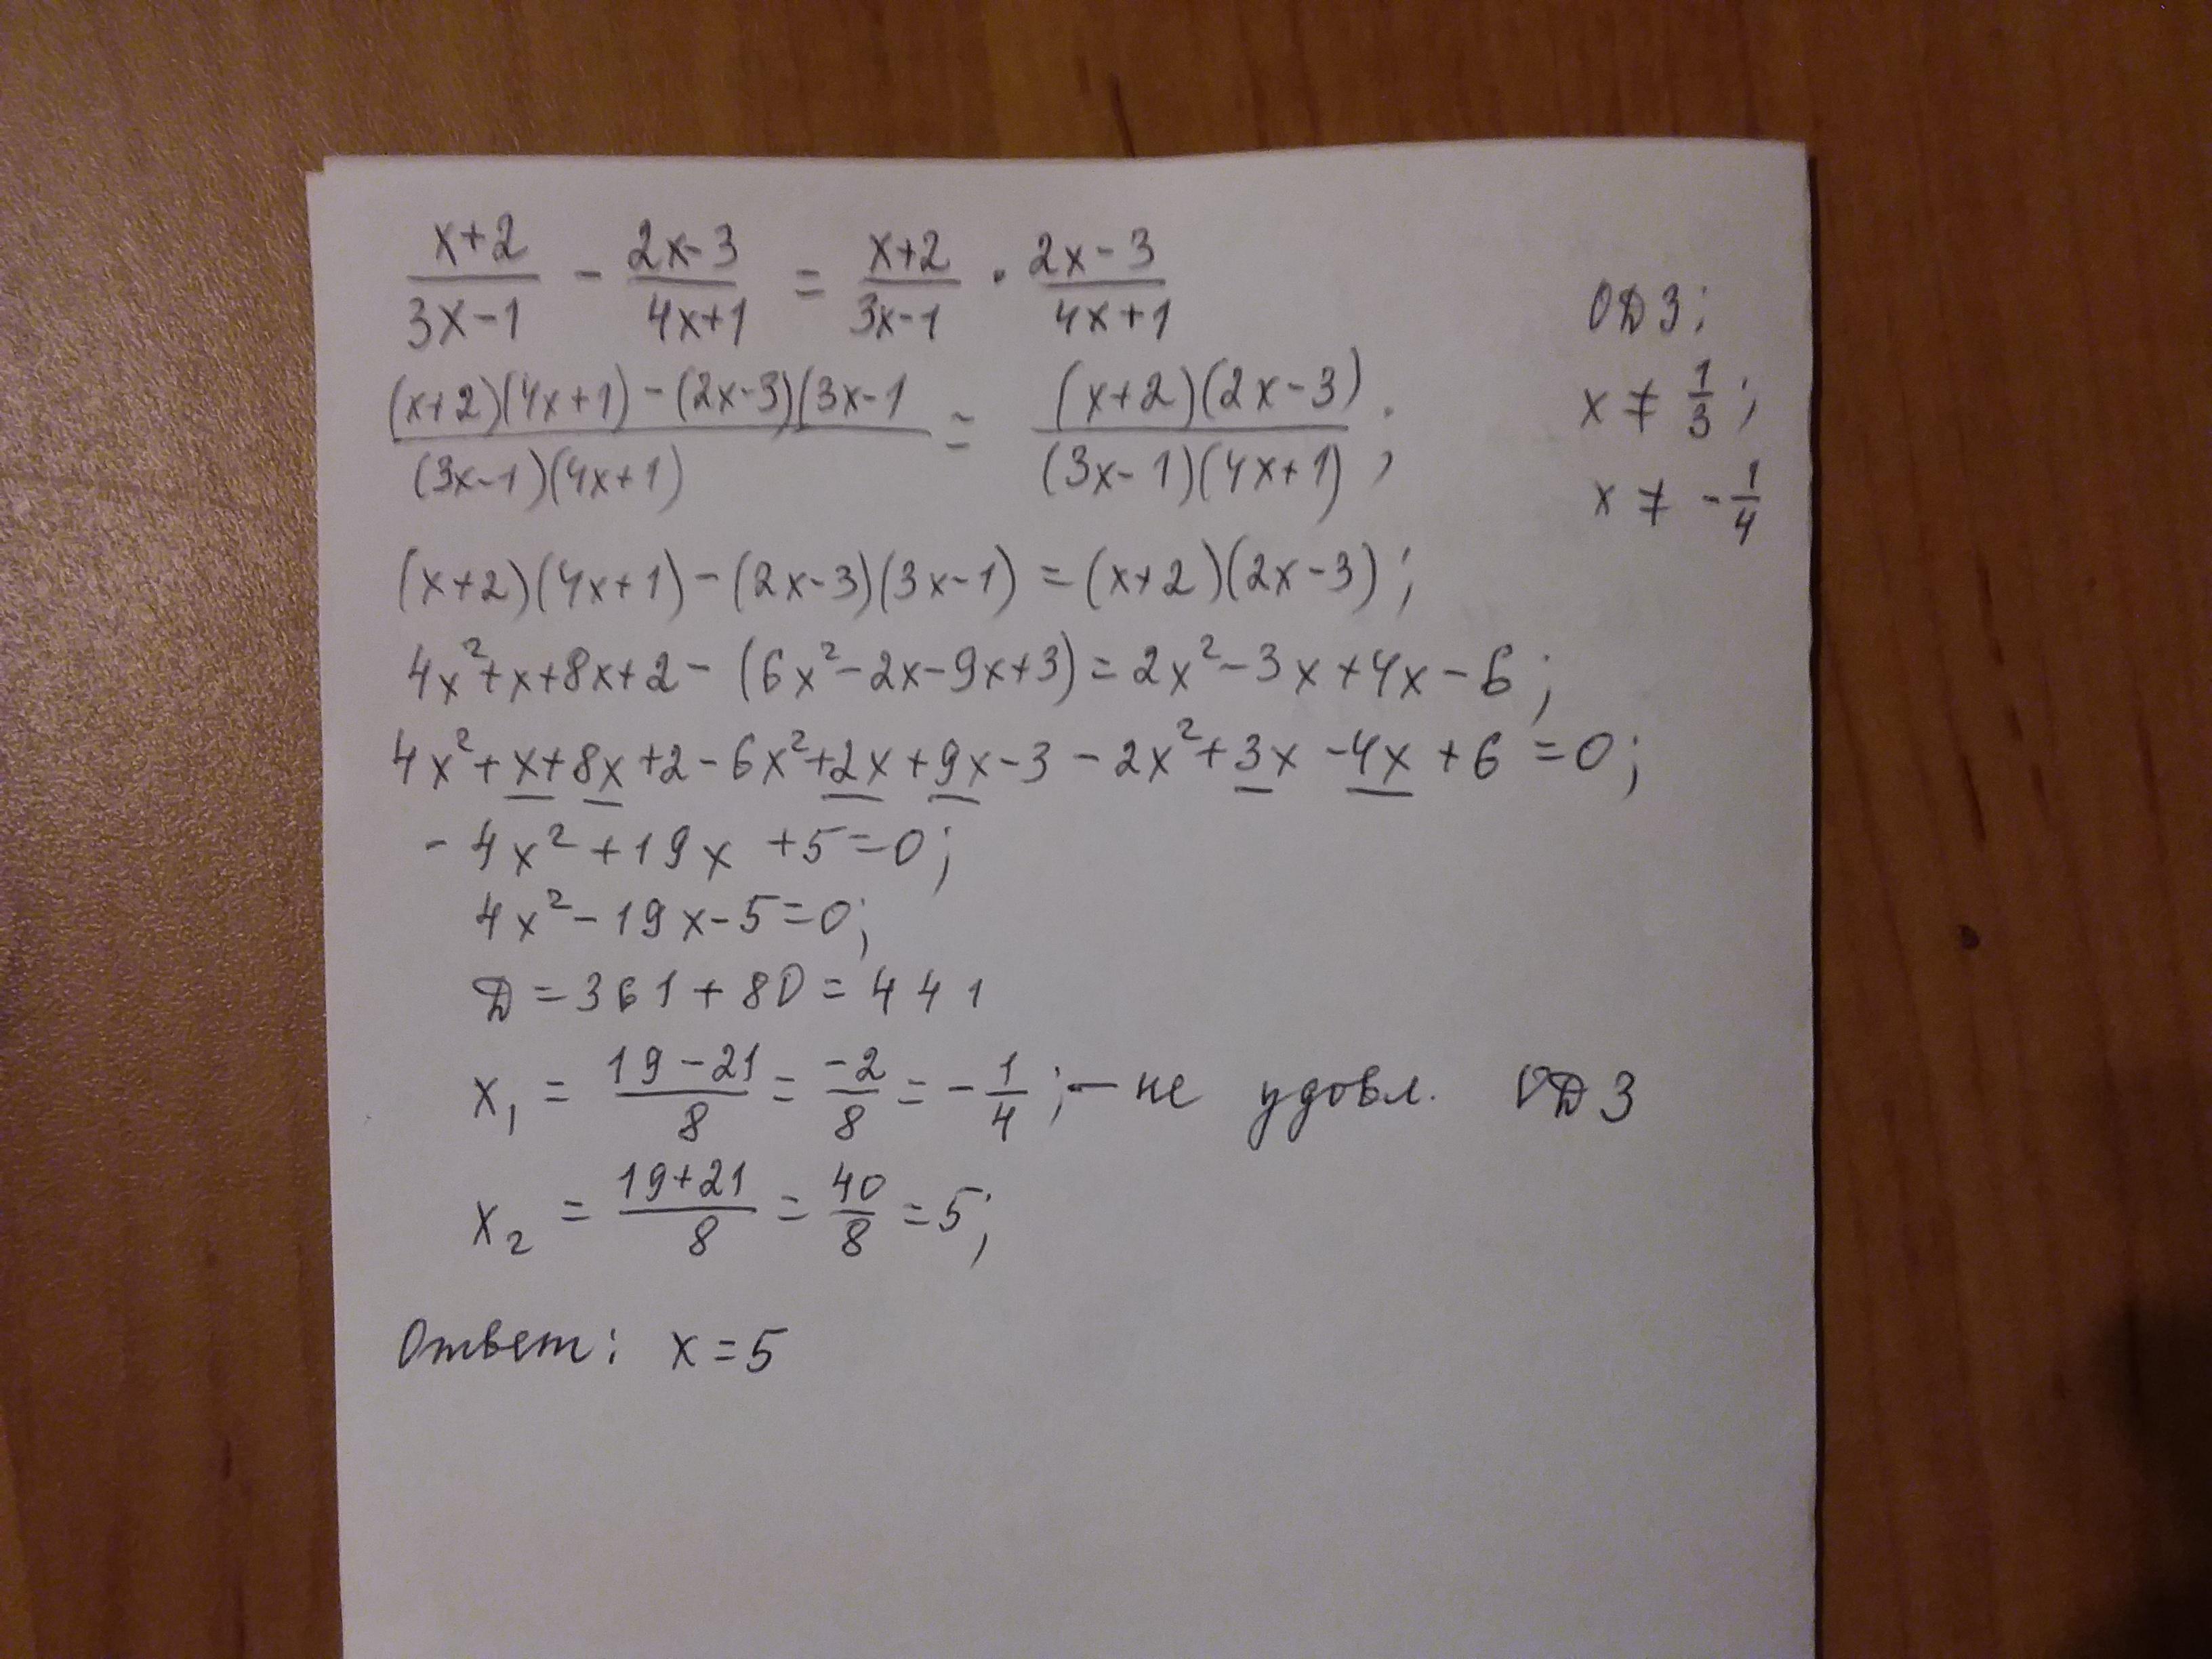 (x+2)/(3x-1) - (2x-3)/(4x+1) = (x+2)/(3x-1) · (2x-3)/(4x+1)
ОДЗ:
x ≠ 1/3;
x ≠ -1/4
((x+2)(4x+1)-(2x-3)(3x-1)/((3x-1)(4x+1)) = ((x+2)(2x-3))/((3x-1)(4x+1));
(x+2)(4x+1)-(2x-3)(3x-1)=(x+2)(2x-3);
4x²+x+8x+2-(6x²-2x-9x+3)=2x²-3x+4x-6;
4x²+x+8x+2-6x²+2x+9x-3-2x²+3x-4x+6=0;
-4x²+19x+5=0;
4x²-19x-5=0;
Д=361+80=441
x₁ = (19-21)/8 = -2/8 = -1/4; - не удовл. ОДЗ
x₂ = (19+21)/8 = 40/8 = 5;
Ответ: x=5